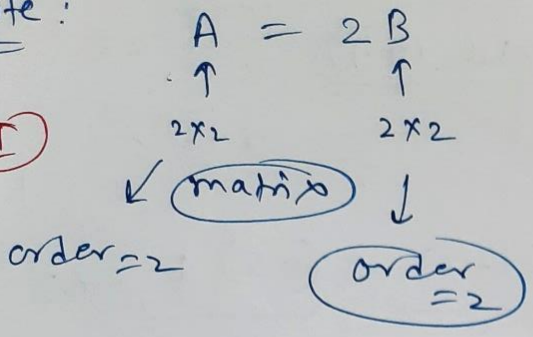 te :
A = 2B
2×2 2×2
matrix
order = 2 order
= 2